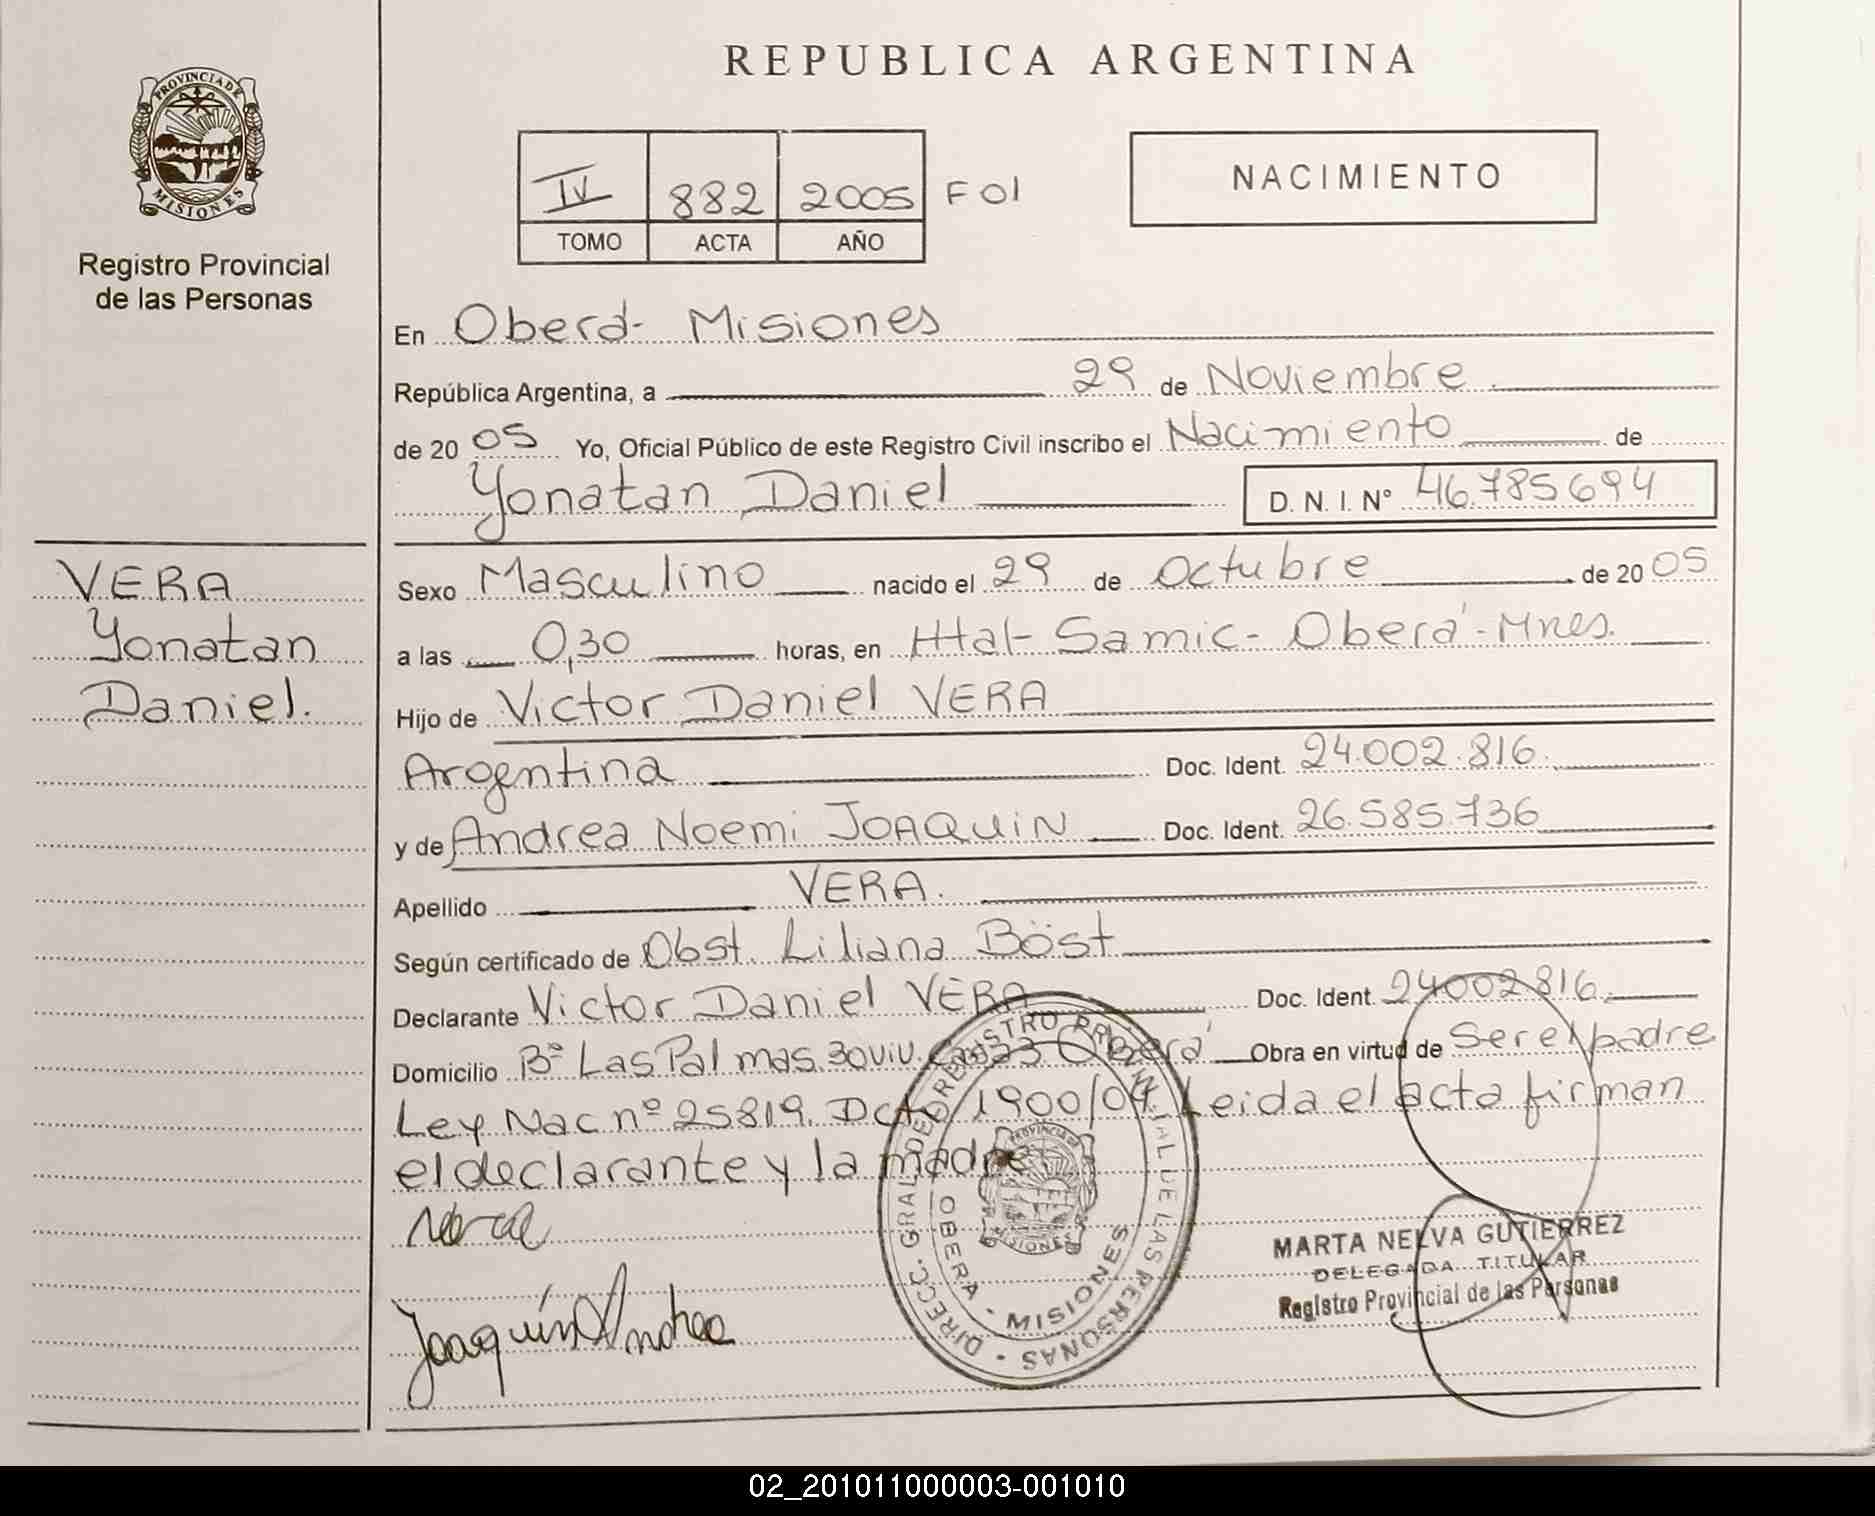 PROVINCIA DE
MISIONES
Registro Provincial
de las Personas
REPUBLICA ARGENTINA
IV 882 2005 F01
TOMO ACTA AÑO
NACIMIENTO
En Oberá- Misiones
República Argentina, a 29 de Noviembre
de 2005 Yo, Oficial Público de este Registro Civil inscribo el Nacimiento de
Yonatan Daniel D. N. I. N° 46.785694
VERA
Yonatan
Daniel.
Sexo Masculino nacido el 29 de Octubre de 2005
a las 0,30 horas, en Htal- Samic- Oberá-Mnes.
Hijo de Victor Daniel VERA
Argentina Doc. Ident. 24.002.816.
y de Andrea Noemi JOAQUIN Doc. Ident. 26.585.736
Apellido VERA.
Según certificado de Obst. Liliana Böst
Declarante Victor Daniel VERA Doc. Ident. 24002816.
Domicilio Bº Las Palmas. 30 viv. Oberá Obra en virtud de Ser el padre
Ley Nac nº 25819. Dcto 1900/04. Leida el acta firman
el declarante y la madre
Joaquín Andrea
DIRECC. GRAL. DE REGISTRO PROVINCIAL DE LAS PERSONAS
OBERA - MISIONES
PROVINCIA DE
MISIONES
MARTA NELVA GUTIERREZ
DELEGADA TITULAR
Registro Provincial de las Personas
02_201011000003-001010